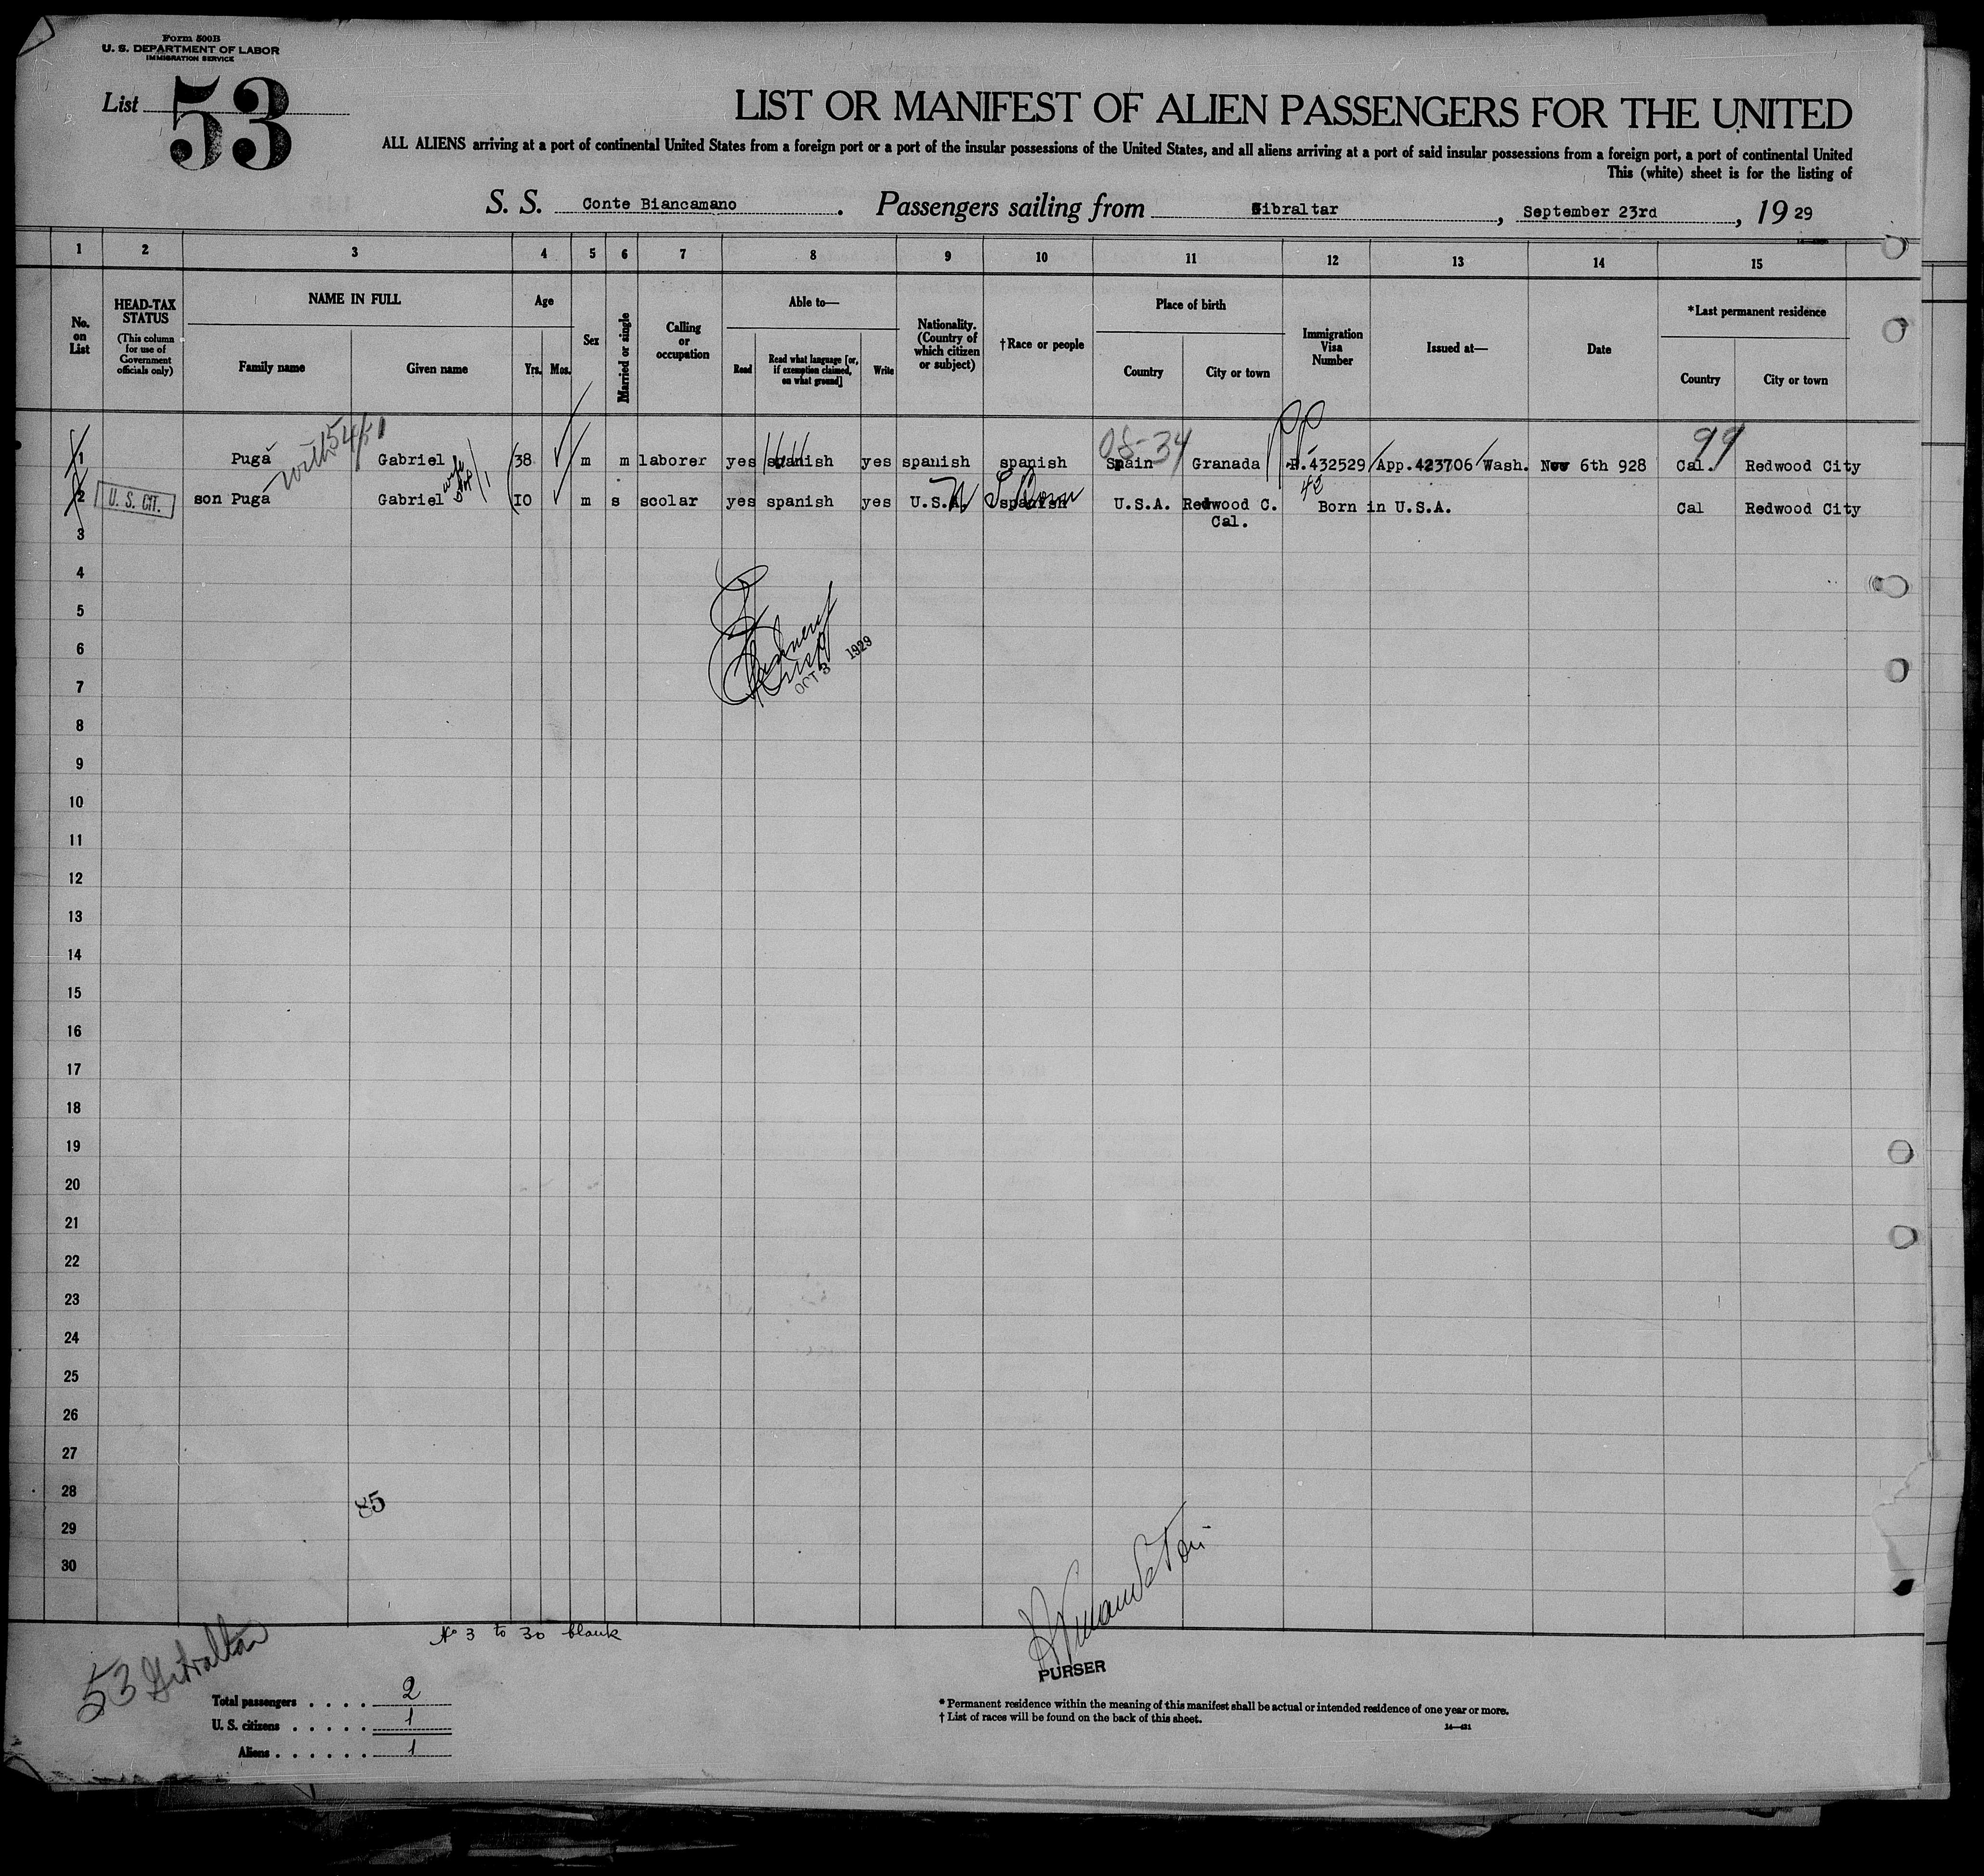 Form 500B
U. S. DEPARTMENT OF LABOR
IMMIGRATION SERVICE
List 53
LIST OR MANIFEST OF ALIEN PASSENGERS FOR THE UNITED
ALL ALIENS arriving at a port of continental United States from a foreign port or a port of the insular possessions of the United States, and all aliens arriving at a port of said insular possessions from a foreign port, a port of continental United
This (white) sheet is for the listing of
S. S. Conte Biancamano. Passengers sailing from Gibraltar, September 23rd, 19 29
1 2 3 4 5 6 7 8 9 10 11 12 13 14 15
No. on List
HEAD-TAX STATUS
(This column for use of Government officials only)
NAME IN FULL
Family name
Given name
Age
Yrs. Mos.
Sex
Married or single
Calling or occupation
Able to—
Read
Read what language [or, if exemption claimed, on what ground]
Write
Nationality. (Country of which citizen or subject)
†Race or people
Place of birth
Country
City or town
Immigration Visa Number
Issued at—
Date
*Last permanent residence
Country
City or town
with 54/51
08-34
99
1 Puga Gabriel 38 m m laborer yes spanish yes spanish spanish Spain Granada P.432529 App.423706 Wash. Nov 6th 928 Cal. Redwood City
2 U. S. CIT. son Puga Gabriel 10 m s scolar yes spanish yes U.S.A. spanish U.S.A. Redwood C. Born in U.S.A. Cal Redwood City
Cal.
3
4
5
6
OCT 3 1929
7
8
9
10
11
12
13
14
15
16
17
18
19
20
21
22
23
24
25
26
27
28
85
29
30
No 3 to 30 blank
53 Gibraltar
PURSER
Total passengers . . . . 2
U. S. citizens . . . . . 1
Aliens . . . . . . 1
* Permanent residence within the meaning of this manifest shall be actual or intended residence of one year or more.
† List of races will be found on the back of this sheet.
14—421